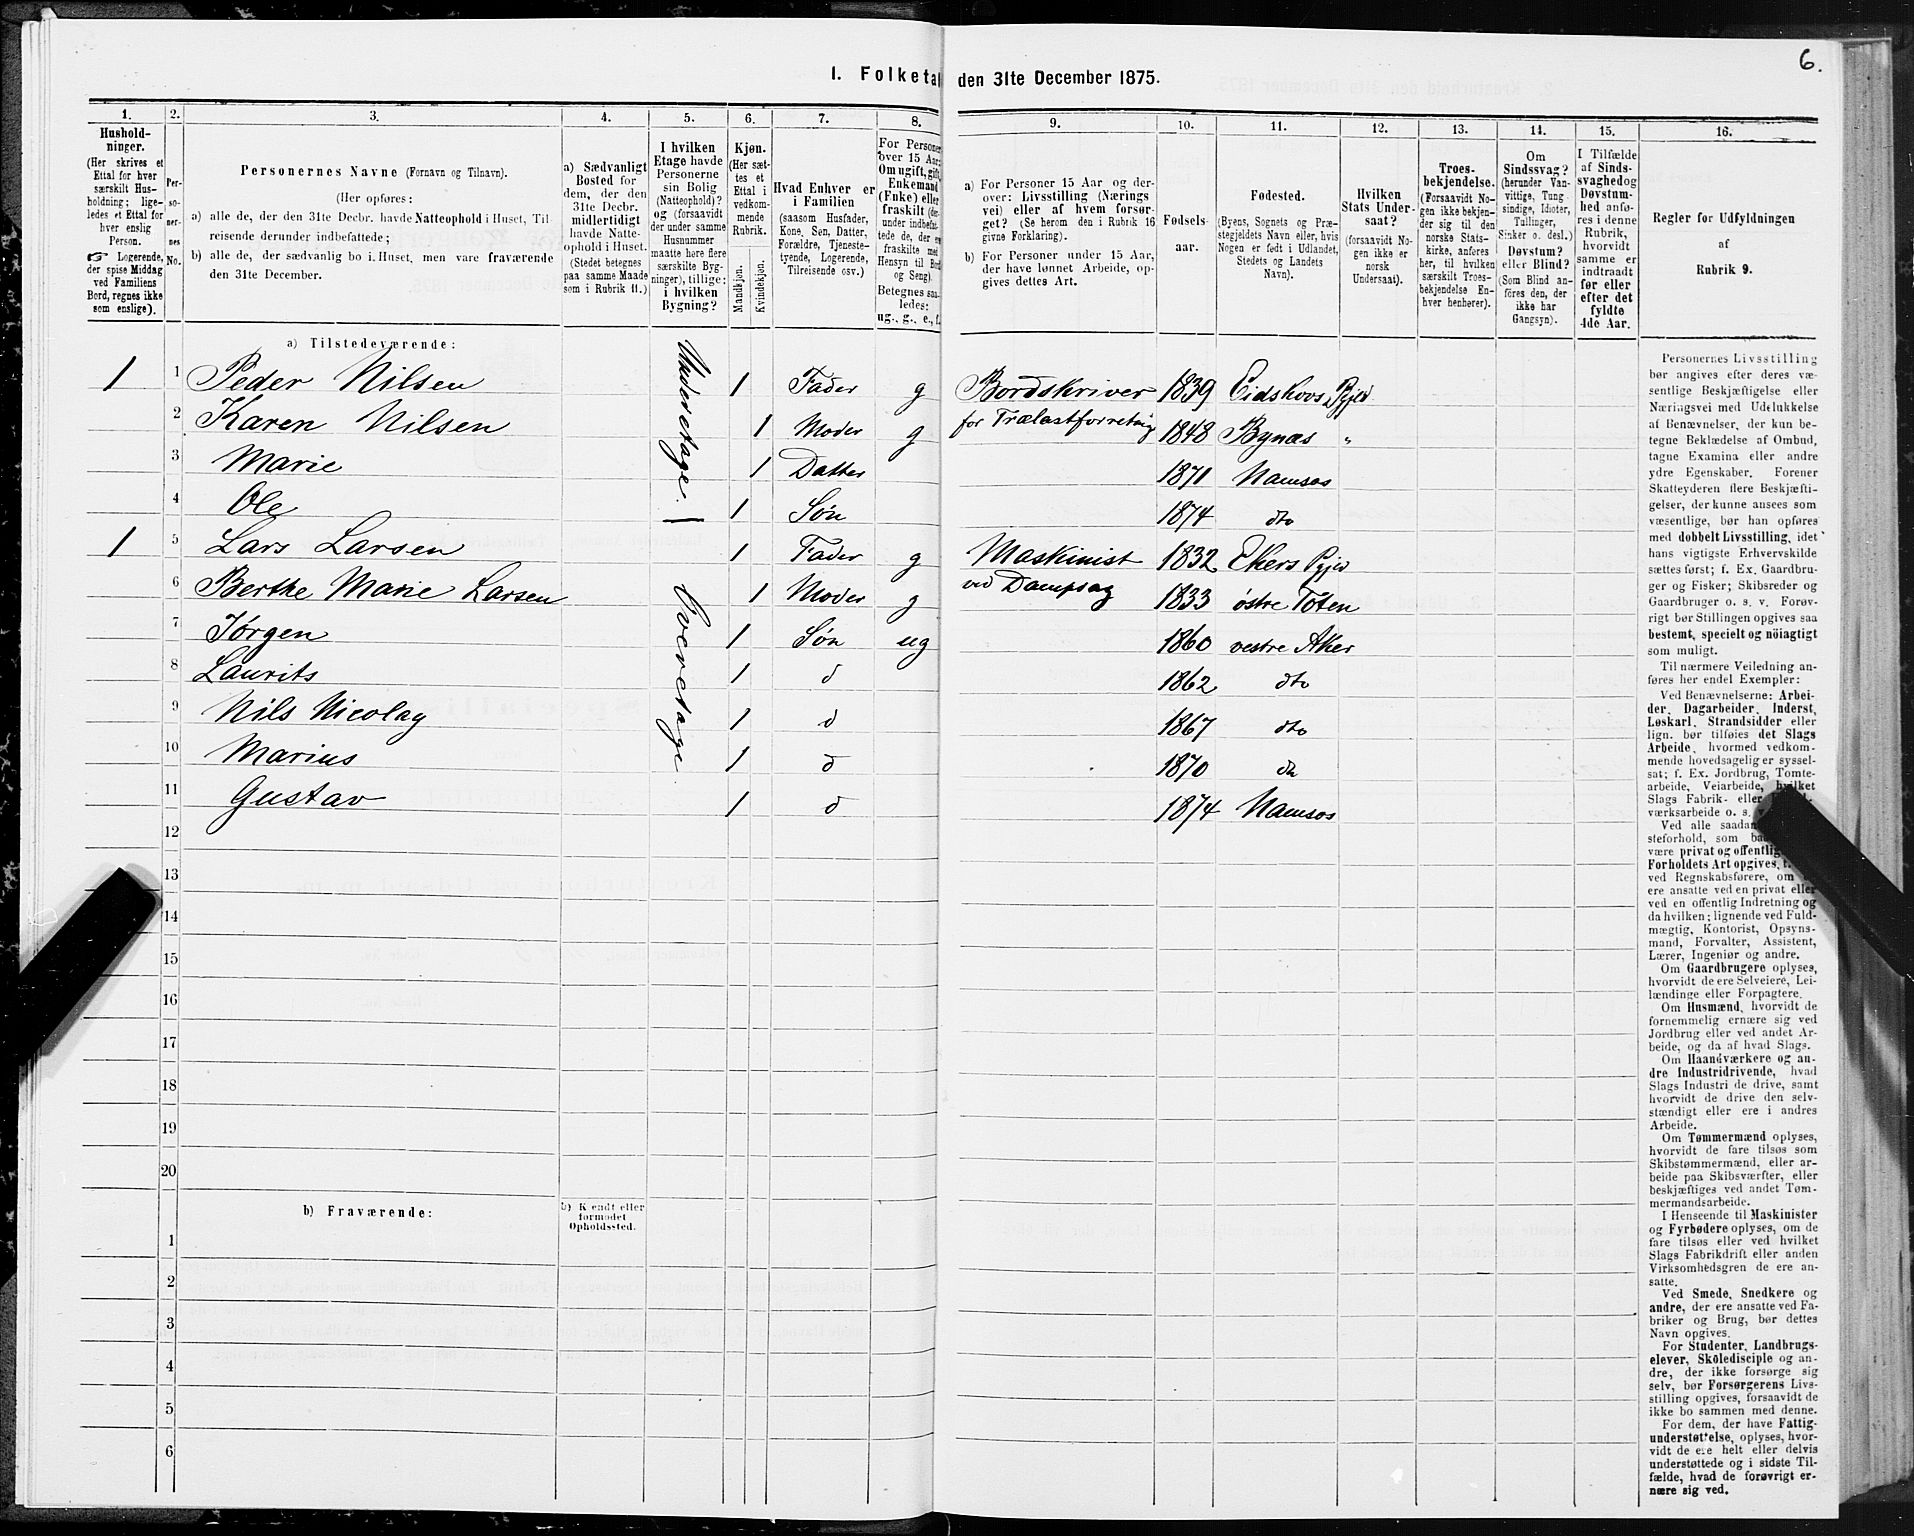 6.
I. Folketal den 31te December 1875.
1. 2. 3. 4. 5. 6. 7. 8. 9. 10. 11. 12. 13. 14. 15. 16.
Hushold-
ninger.
(Her skrives et
Ettal for hver
særskilt Hus-
holdning; lige-
ledes et Ettal for
hver enslig
Person.
☞ Logerende,
der spise Middag
ved Familiens
Bord, regnes ikke
som enslige).
Per-
so-
ner-
nes
No.
Personernes Navne (Fornavn og Tilnavn).
(Her opføres:
a) alle de, der den 31te Decbr. havde Natteophold i Huset, Til-
reisende derunder indbefattede;
b) alle de, der sædvanlig bo i Huset, men vare fraværende
den 31te December.
a) Sædvanligt
Bosted for
dem, der den
31te Decbr.
midlertidigt
havde Natte-
ophold i Huset.
(Stedet betegnes
paa samme Maade
som i Rubrik 11.)
I hvilken
Etage havde
Personerne
sin Bolig
(Natteophold)?
og (forsaavidt
der under samme
Husnummer
maatte høre flere
særskilte Byg-
ninger), tillige:
i hvilken
Bygning?
Kjøn.
(Her sæt-
tes et
Ettal i
vedkom-
mende
Rubrik.
Mandkjøn.
Kvindekjøn.
Hvad Enhver er
i Familien
(saasom Husfader,
Kone, Søn, Datter,
Forældre, Tjeneste-
tyende, Logerende,
Tilreisende osv.)
For Personer
over 15 Aar:
Om ugift, gift,
Enkemand
(Enke) eller
fraskilt (der-
under indbefat-
tede de, der ere
fraskilte med
Hensyn til Bord
og Seng).
Betegnes saa-
ledes:
ug., g., e., f.
a) For Personer 15 Aar og der-
over: Livsstilling (Nærings
vei) eller af hvem forsør-
get? (Se herom den i Rubrik 16
givne Forklaring).
b) For Personer under 15 Aar,
der have lønnet Arbeide, op-
gives dettes Art.
Fødsels-
aar.
Fødested.
(Byens, Sognets og Præ-
stegjeldets Navn eller, hvis
Nogen er født i Udlandet,
Stedets og Landets
Navn).
Hvilken
Stats Under-
saat?
(forsaavidt No-
gen ikke er
norsk
Undersaat).
Troes-
bekjendelse.
(Forsaavidt No-
gen ikke bekjen-
der sig til den
norske Stats-
kirke, anføres
her, til hvilken
særskilt Troes-
bekjendelse En-
hver henhører).
Om
Sindssvag?
(herunder Van-
vittige, Tung
sindige, Idioter,
Tullinger,
Sinker o. desl.)
Døvstum?
eller Blind?
(Som Blind an-
føres den, der
ikke har
Gangsyn).
I Tilfælde
af Sinds-
svaghed og
Døvstum-
hed anfø-
res i denne
Rubrik,
hvorvidt
samme er
indtraadt
før eller
efter det
fyldte
4de Aar.
Regler for Udfyldningen
af
Rubrik 9.
a) Tilstedeværende:
1 1 Peder Nilsen 1 Fader g Bordskriver 1839 Eidskovs Pgjed
2 Karen Nilsen 1 Moder g for Trælastforretnig 1848 Bynæs „
3 Marie 1 Datter 1871 Namsos
4 Ole 1 Søn 1874 dto
Underetage.
1 5 Lars Larsen 1 Fader g Maskinist 1832 Ekers Pgjed
6 Berthe Marie Larsen 1 Moder g ved Dampsag 1833 østre Toten
7 Jørgen 1 Søn ug 1860 vestre Aker
8 Laurits 1 d 1862 dto
9 Nils Nicolay 1 d 1867 dto
10 Marius 1 d 1870 do
11 Gustav 1 d 1874 Namsos
Overetage
12
13
14
15
16
17
18
19
20
b) Fraværende:
b) Kjendt eller
formodet
Opholdssted.
1
2
3
4
5
6
Personernes Livsstilling
bør angives efter deres væ-
sentlige Beskjæftigelse eller
Næringsvei med Udelukkelse
af Benævnelser, der kun be-
tegne Beklædelse af Ombud,
tagne Examina eller andre
ydre Egenskaber. Forener
Skatteyderen flere Beskjæfti-
gelser, der kunne ansees som
væsentlige, bør han opføres
med dobbelt Livsstilling, idet
hans vigtigste Erhvervskilde
sættes først; f. Ex. Gaardbru-
ger og Fisker; Skibsreder og
Gaardbruger o. s. v. Forøv-
rigt bør Stillingen opgives saa
bestemt, specielt og nöiagtigt
som muligt.
Til nærmere Veiledning an-
føres her endel Exempler:
Ved Benævnelserne: Arbei-
der, Dagarbeider, Inderst,
Løskarl, Strandsidder eller
lign. bør tilføies det Slags
Arbeide, hvormed vedkom-
mende hovedsagelig er syssel-
sat; f. Ex. Jordbrug, Tomte-
arbeide, Veiarbeide, hvilket
Slags Fabrik- eller
værksarbeide o. s.
Ved alle saadan
steforhold, som
være privat og offentlig,
Forholdets Art opgives,
ved Regnskabsførere, om
ere ansatte ved en privat eller
ved en offentlig Indretning og
da hvilken; lignende ved Fuld-
mægtig, Kontorist, Opsyns-
mand, Forvalter, Assistent,
Lærer, Ingeniør og andre.
Om Gaardbrugere oplyses,
hvorvidt de ere Selveiere, Lei-
lændinge eller Forpagtere.
Om Husmænd, hvorvidt de
fornemmelig ernære sig ved
Jordbrug eller ved andet Ar-
beide, og da af hvad Slags.
Om Haandværkere og an-
dre Industridrivende, hvad
Slags Industri de drive, samt
hvorvidt de drive den selv-
stændigt eller ere i andres
Arbeide.
Om Tømmermænd oplyses,
hvorvidt de fare tilsøs som
Skibstømmermænd, eller ar-
beide paa Skibsværfter, eller
beskjæftiges ved andet Tøm-
mermandsarbeide.
I Henseende til Maskinister
og Fyrbødere oplyses, om de
fare tilsøs eller ved hvilket
Slags Fabrikdrift eller anden
Virksomhedsgren de ere an-
satte.
Ved Smede, Snedkere og
andre, der ere ansatte ved Fa-
briker og Brug, bør dettes
Navn opgives.
For Studenter, Landbrugs-
elever, Skoledisciple og an-
dre, der ikke forsørge sig
selv, bør Forsørgerens Livs-
stilling opgives, forsaavidt de
ikke bo sammen med denne.
For dem, der have Fattig-
understøttelse, oplyses, hvor-
vidt de ere helt eller delvis
understøttede og i sidste Til-
fælde, hvad de forøvrigt er-
nære sig ved.